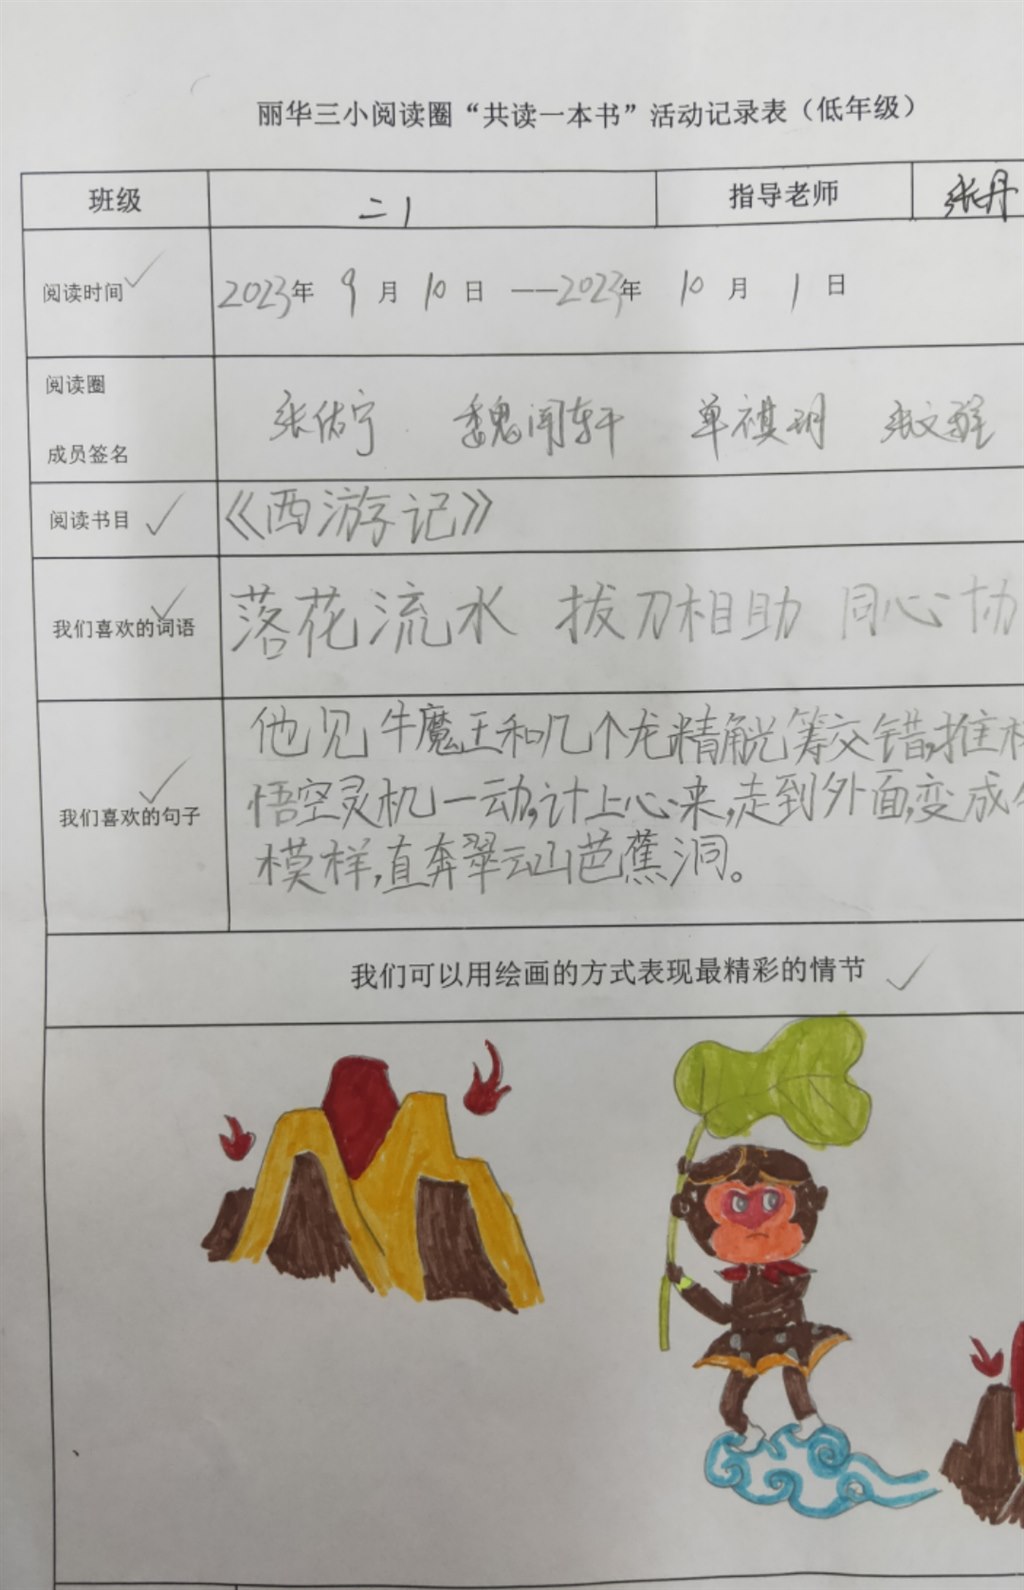 丽华三小阅读圈“共读一本书”活动记录表（低年级）
班级 二1 指导老师 张丹
阅读时间 2023年 9 月 10 日 ——2023年 10 月 1 日
阅读圈
张佑宁 魏闻轩 单祺玥 张文
成员签名
阅读书目 《西游记》
我们喜欢的词语 落花流水 拔刀相助 同心协
我们喜欢的句子
他见牛魔王和几个龙精觥筹交错,推
悟空灵机一动,计上心来,走到外面,变成
模样,直奔翠云山芭蕉洞。
我们可以用绘画的方式表现最精彩的情节